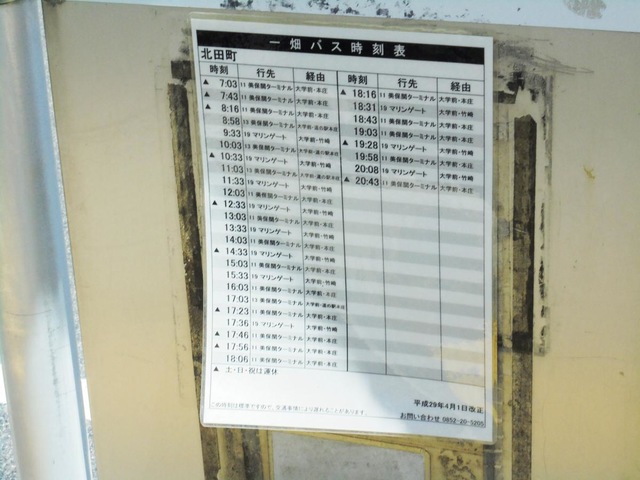 一畑バス時刻表
北田町
時刻 行先 経由 時刻 行先 経由
▲ 7:03 11 美保関ターミナル 大学前・本庄
▲ 7:43 11 美保関ターミナル 大学前・本庄
▲ 8:16 11 美保関ターミナル 大学前・本庄
8:58 13 美保関ターミナル 大学前・道の駅本庄
9:33 19 マリンゲート 大学前・竹崎
10:03 13 美保関ターミナル 大学前・道の駅本庄
▲ 10:33 19 マリンゲート 大学前・竹崎
11:03 13 美保関ターミナル 大学前・道の駅本庄
11:33 19 マリンゲート 大学前・竹崎
12:03 11 美保関ターミナル 大学前・本庄
▲ 12:33 19 マリンゲート 大学前・竹崎
13:03 11 美保関ターミナル 大学前・本庄
13:33 19 マリンゲート 大学前・竹崎
14:03 11 美保関ターミナル 大学前・本庄
▲ 14:33 19 マリンゲート 大学前・竹崎
15:03 11 美保関ターミナル 大学前・本庄
15:33 19 マリンゲート 大学前・竹崎
16:03 11 美保関ターミナル 大学前・本庄
17:03 13 美保関ターミナル 大学前・道の駅本庄
▲ 17:23 11 美保関ターミナル 大学前・本庄
17:36 19 マリンゲート 大学前・竹崎
▲ 17:46 11 美保関ターミナル 大学前・本庄
▲ 17:56 11 美保関ターミナル 大学前・本庄
18:06 11 美保関ターミナル 大学前・本庄
▲ 18:16 11 美保関ターミナル 大学前・本庄
18:31 19 マリンゲート 大学前・竹崎
18:43 11 美保関ターミナル 大学前・本庄
19:03 11 美保関ターミナル 大学前・本庄
▲ 19:28 19 マリンゲート 大学前・竹崎
19:58 11 美保関ターミナル 大学前・本庄
20:08 19 マリンゲート 大学前・竹崎
▲ 20:43 11 美保関ターミナル 大学前・本庄
▲ 土・日・祝は運休
この時刻は標準ですので、交通事情により遅れることがあります。
平成29年4月1日改正
お問い合わせ 0852-20-5205